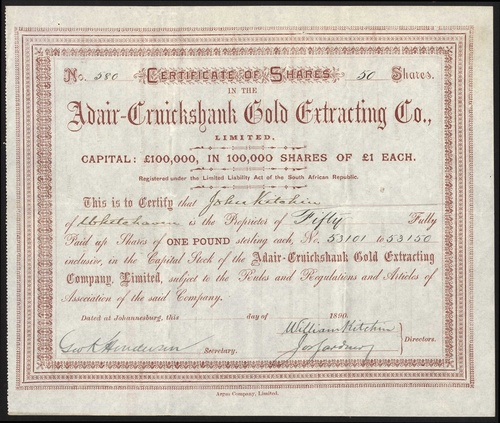 No. 580 CERTIFICATE OF SHARES 50 Shares.
IN THE
Adair-Cruickshank Gold Extracting Co.,
LIMITED.
CAPITAL: £100,000, IN 100,000 SHARES OF £1 EACH.
Registered under the Limited Liability Act of the South African Republic.
This is to Certify that John Kitchin
of is the Proprietor of Fifty Fully
Paid up Shares of ONE POUND sterling each, No. 53101 to 53150
inclusive, in the Capital Stock of the Adair-Cruickshank Gold Extracting
Company, Limited, subject to the Rules and Regulations and Articles of
Association of the said Company.
Dated at Johannesburg, this day of 1890.
William Kitchin
Directors.
Geo K Henderson Secretary.
Argus Company, Limited.